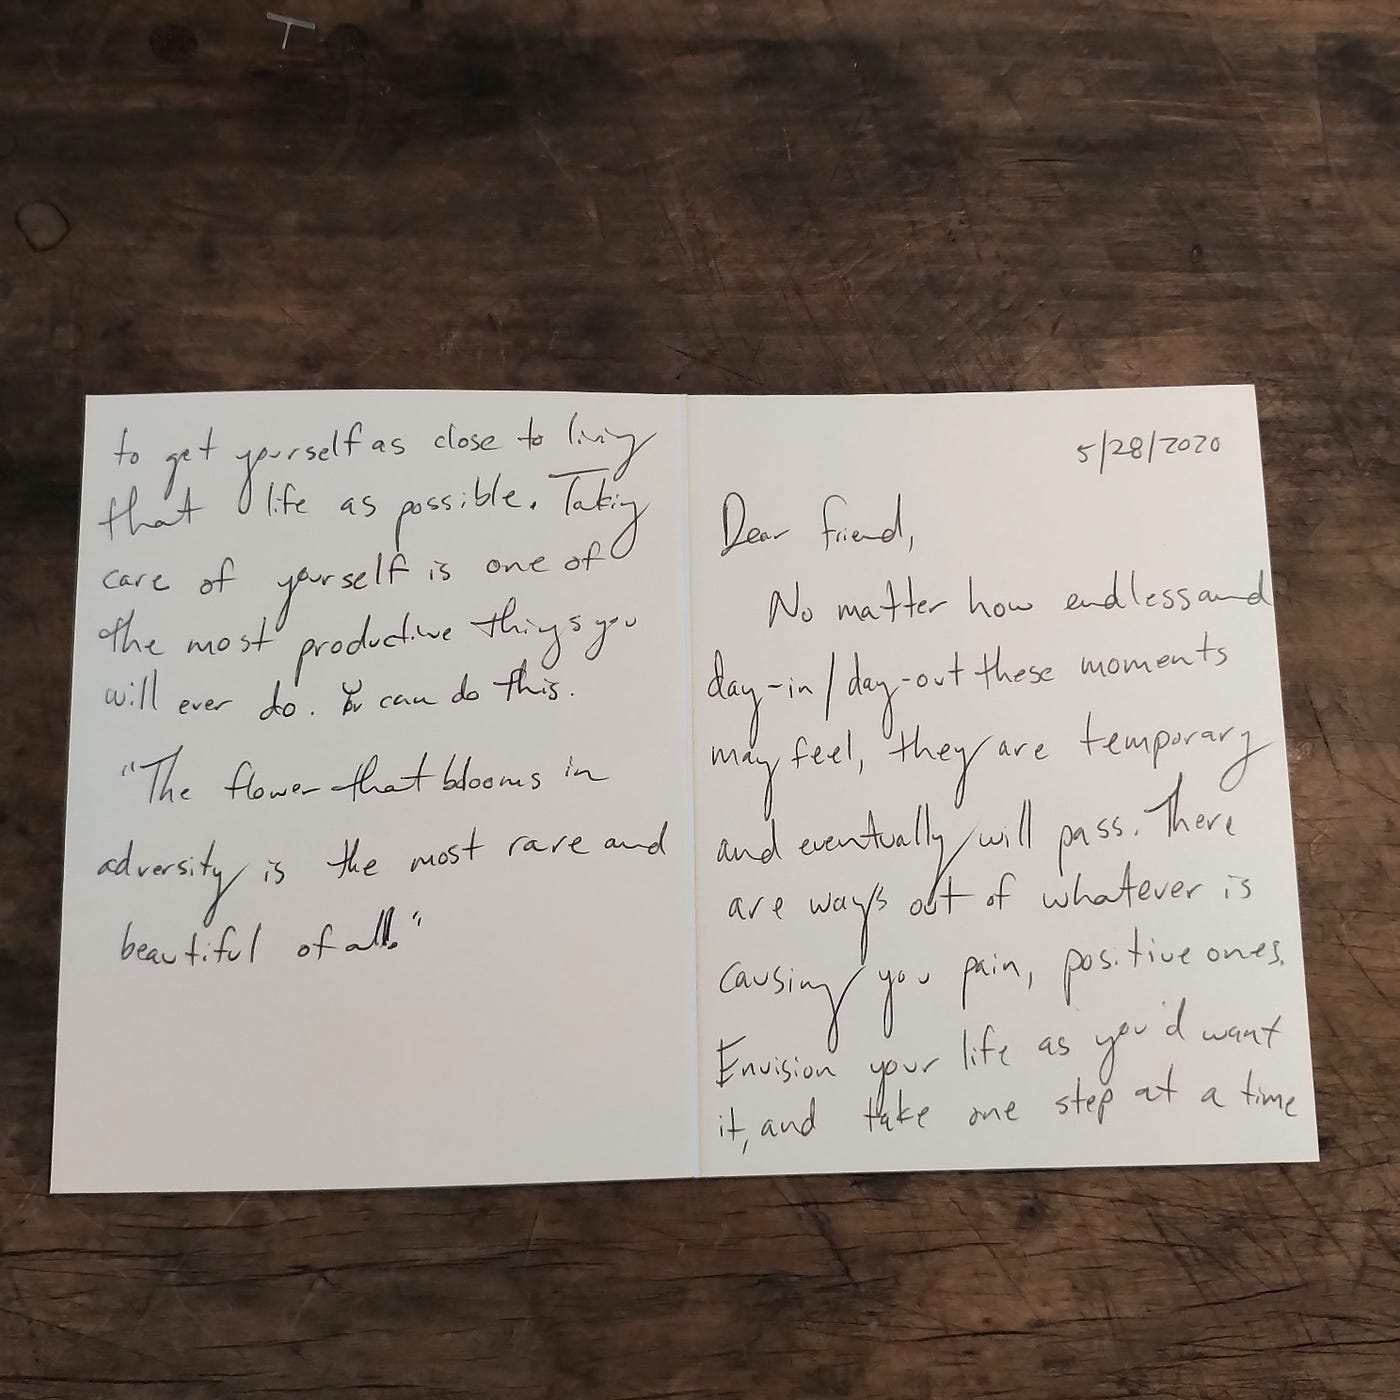 5/28/2020
Dear friend,
No matter how endless and
day-in/day-out these moments
may feel, they are temporary
and eventually will pass. There
are ways out of whatever is
causing you pain, positive ones.
Envision your life as you'd want
it, and take one step at a time
to get yourself as close to living
that life as possible. Taking
care of yourself is one of
the most productive things you
will ever do. You can do this.
"The flower that blooms in
adversity is the most rare and
beautiful of all."